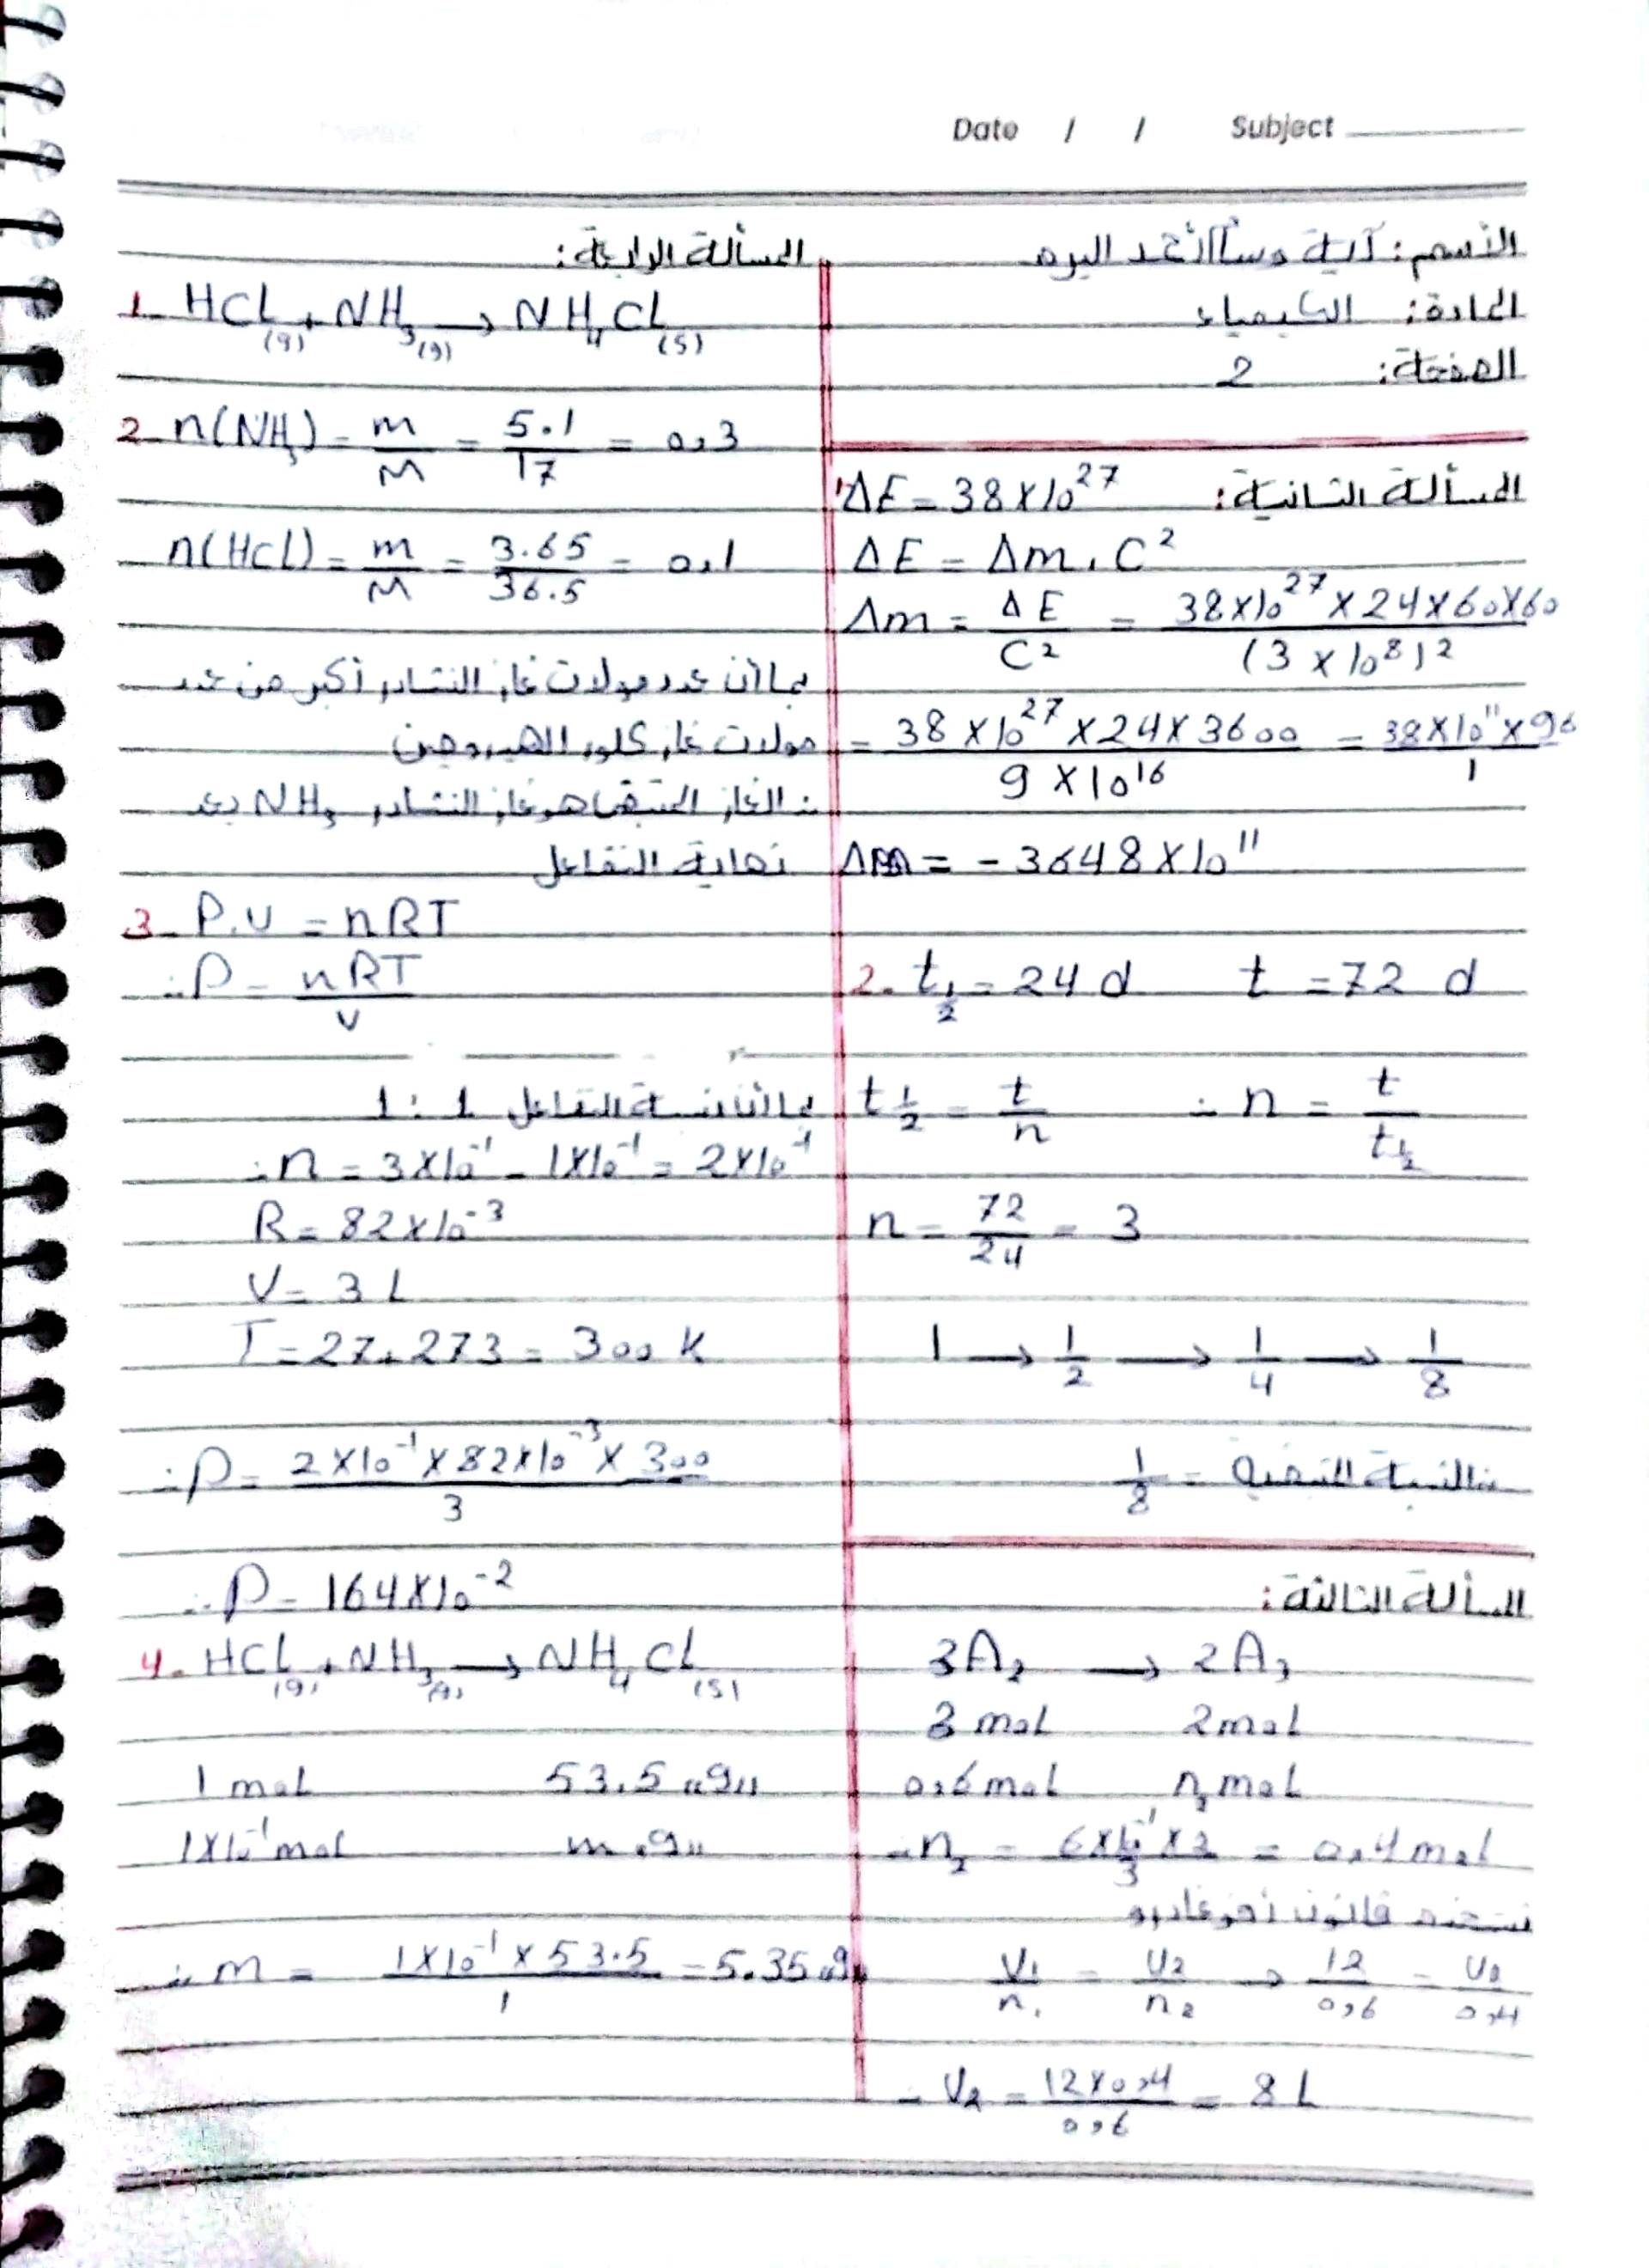 Date / / Subject
الأسم: آية
المادة: الكيمياء
الصفحة: 2
المسألة الثانية:
1 ΔE = 38×10²⁷
ΔE = Δm . C²
Δm = ΔE / C² = 38×10²⁷ × 24×60×60 / (3 × 10⁸)²
= 38 × 10²⁷ × 24 × 3600 / 9 × 10¹⁶ = 38×10¹¹ × 96 / 1
Δm = - 3648 × 10¹¹
2. t½ = 24 d t = 72 d
t½ = t / n ∴ n = t / t½
n = 72 / 24 = 3
1 → 1/2 → 1/4 → 1/8
∴ النسبة المتبقية = 1/8
المسألة الثالثة:
3A₂ → 2A₃
3 mol 2 mol
0,6 mol n₂ mol
∴ n₂ = 6×10⁻¹ × 2 / 3 = 0,4 mol
نستخدم قانون أفوغادرو
V₁ / n₁ = V₂ / n₂ → 12 / 0,6 = V₂ / 0,4
∴ V₂ = 12×0,4 / 0,6 = 8 L
المسألة الرابعة:
1- HCl(g) + NH₃(g) → NH₄Cl(s)
2- n(NH₃) = m / M = 5.1 / 17 = 0,3
n(HCl) = m / M = 3.65 / 36.5 = 0,1
بما أن عدد مولات غاز النشادر أكبر من عدد
مولات غاز كلور الهيدروجين
∴ الغاز المتبقي هو غاز النشادر NH₃ بعد
نهاية التفاعل
3- P.V = nRT
∴ P = nRT / V
بما أن نسبة التفاعل 1 : 1
∴ n = 3×10⁻¹ - 1×10⁻¹ = 2×10⁻¹
R = 82×10⁻³
V = 3 L
T = 27 + 273 = 300 K
∴ P = 2×10⁻¹ × 82×10⁻³ × 300 / 3
∴ P = 164×10⁻²
4. HCl(g) + NH₃(g) → NH₄Cl(s)
1 mol 53.5 "g"
1×10⁻¹ mol m "g"
∴ m = 1×10⁻¹ × 53.5 / 1 = 5.35 "g"